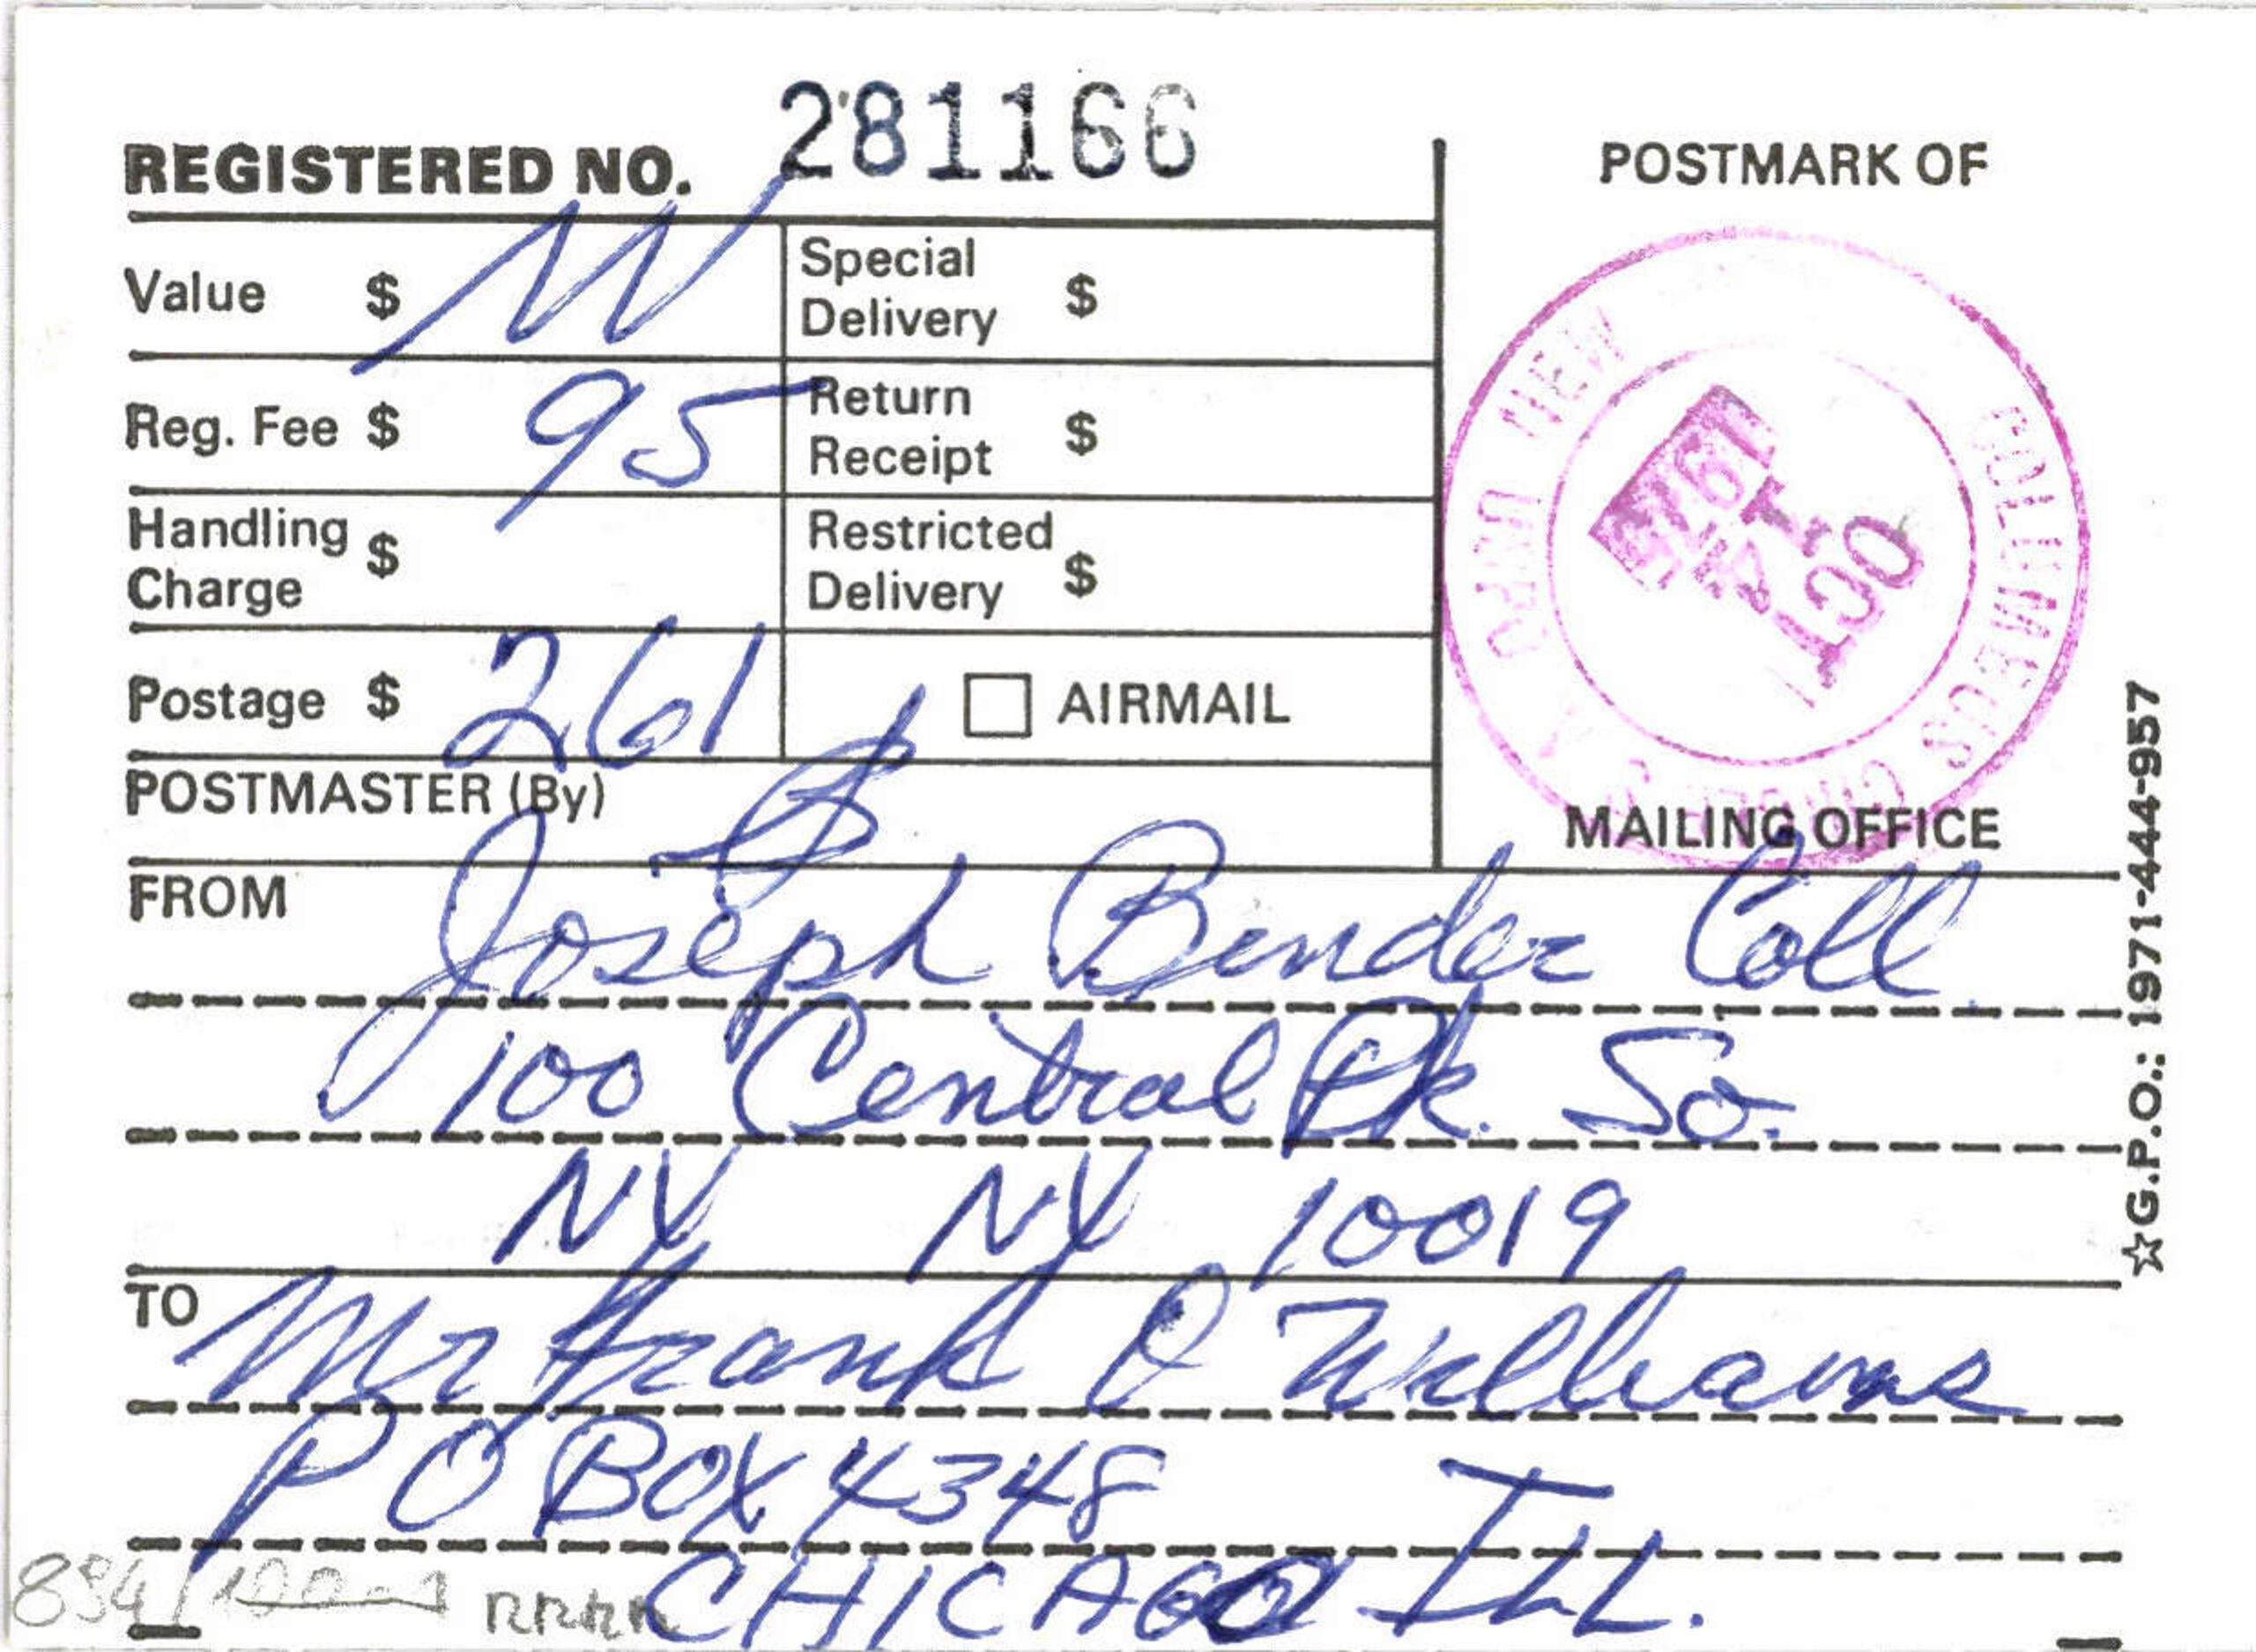 REGISTERED NO. 281166
POSTMARK OF
Value $ Special Delivery $
Reg. Fee $ 95 Return Receipt $
Handling Charge $ Restricted Delivery $
Postage $ 261 AIRMAIL
POSTMASTER (By)
MAILING OFFICE
OCT 1
COLUMBUS CIRCLE
NEW
FROM Joseph Binder Coll
100 Central Pk. So.
NY NY 10019
TO Mr Frank O Williams
PO BOX 4348
CHICAGO ILL.
834/
☆ G.P.O.: 1971-444-957